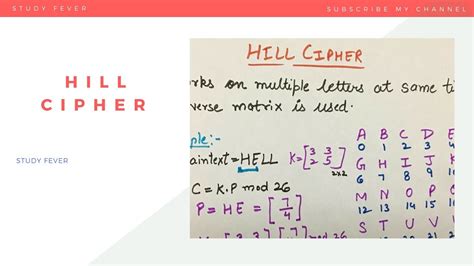 STUDY FEVER
SUBSCRIBE MY CHANNEL
HILL
CIPHER
STUDY FEVER
HILL CIPHER
rks on multiple letters at same ti
verse matrix is used.
ple:-
aintext=HELL K=[3 3
2 5]2x2
C=K.P mod 26
P = HE = [7
4]
A B C D E
0 1 2 3 4
G H I J K
6 7 8 9
M N O P
12 13 14 15
S T U V